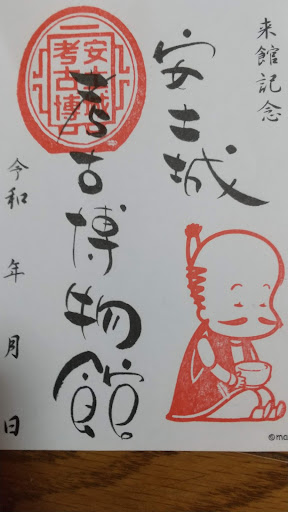 来館記念
安土城
考古博物館
安土城
考古博
令和 年 月 日